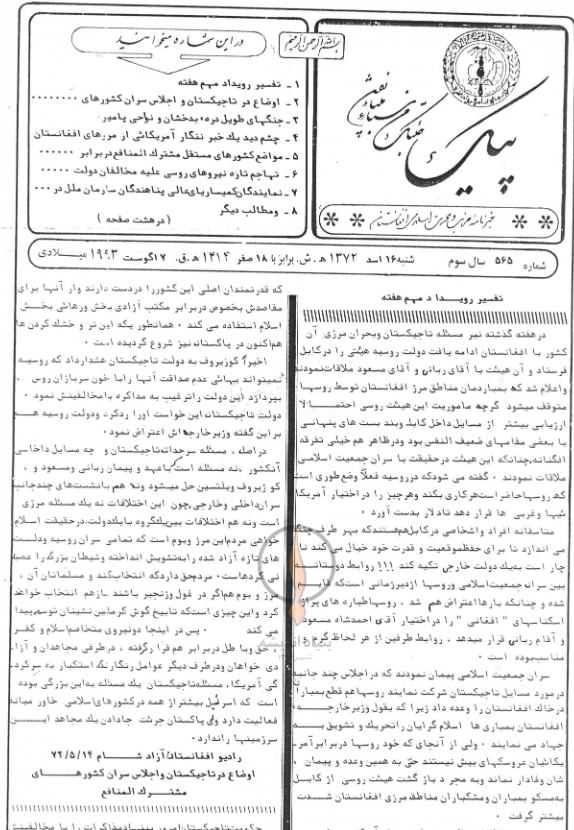 بسم الله الرحمن الرحیم
در این شماره میخوانید
۱ ـ تفسیر رویداد مهم هفته
۲ ـ اوضاع در تاجیکستان و اجلاس سران کشورهای ........
۳ ـ جنگهای طویل دره بدخشان و نواحی پامیر
۴ ـ چشم دید یک خبر نگار آمریکائی از مرزهای افغانستان
۵ ـ مواضع کشورهای مستقل مشترک المنافع در برابر .....
۶ ـ تهاجم تازه نیروهای روسی علیه مخالفان دولت .....
۷ ـ نمایندگان کمیساریای عالی پناهندگان سازمان ملل در ...
۸ ـ ومطالب دیگر
( در هشت صفحه )
پیک
شماره ۵۶۵ سال سوم شنبه ۱۶ اسد ۱۳۷۲ ه‍ . ش . برابر با ۱۸ صفر ۱۴۱۴ ه‍ . ق . ۷ اگوست ۱۹۹۳ میلادی
تفسیر رویداد مهم هفته
در هفته گذشته نیز مسئله تاجیکستان وبحران مرزی آن
کشور با افغانستان ادامه یافت دولت روسیه هیئتی را در کابل
فرستاد و آن هیئت با آقای ربانی و آقای مسعود ملاقات نمودند
واعلام شد که بمباردمان مناطق مرز افغانستان توسط روسها
متوقف میشود گرچه ماموریت این هیئت روسی احتمالا
ارزیابی بیشتر از مسایل داخل کابل وبند بست های پنهانی
با بعضی مقامهای ضعیف النفس بود ودر ظاهر هم خیلی تفرقه
افگنانه،چنانکه این هیئت در حقیقت با سران جمعیت اسلامی
ملاقات نمودند . گفته می شود که در روسیه فعلا وضع طوری است
که روسها حاضر است هر کاری بکند وهر چیز را در اختیار آمریکا
ئیها و غربی ها قرار دهد تا دلار بدست آورد .
متاسفانه افراد واشخاص در کابل هستند که بهر طرف جنگ
می اندازد تا برای حفظ موقعیت و قدرت خود خیال می کند نا
چار است به یک دولت خارجی تکیه کند !!! روابط دوستانه
بین سران جمعیت اسلامی وروسها از دیر زمانی است که قایم
شده و چنانکه بارها اعتراض هم شد ، روسها طیاره های پر از
اسکناسهای " افغانی " را در اختیار آقای احمدشاه مسعود
و آقای ربانی قرار میدهد ، روابط طرفین از هر لحاظ گرم و
مناسب بوده است .
سران جمعیت اسلامی پیمان نمودند که در اجلاس چند جانبه
در مورد مسایل تاجیکستان شرکت نمایند روسها هم قطع بمبار
در خاک افغانستان را وعده داد زیرا که بقول وزیر خارجه
افغانستان بمباری ها اسلام گرایان را تحریک و تشویق به
جهاد می نمایند . ولی از آنجای که خود روسها در برابر آمر
یکائیان عروسکهای بیش نیستند حتی به همین وعده و پیمان
شان وفادار نماند وبه مجرد باز گشت هیئت روسی از کابل
به مسکو بمباران ومشکباران مناطق مرزی افغانستان شدت
بیشتر گرفت .
که قدرتمندان اصلی این کشور را در دست دارند وار آنها برای
مقاصدش بخصوص در برابر مکتب آزادی بخش ورهائی بخش
اسلام استفاده می کند . همانطور یکه این تر و خشک کردن ها
هم اکنون در پاکستان نیز شروع گردیده است .
اخیرا کوزیروف به دولت تاجیکستان هشدار داد که روسیه
نمیتواند بهائی عدم صداقت آنها را با خون سربازان روس
بپردازد این دولت را ترغیب به مذاکره با مخالفینش نمود .
دولت تاجیکستان این خواست او را رد کرد ودولت روسیه هم
بر این گفته وزیر خارجه اش اعتراض نمود .
در اصل ، مسئله سرحدات تاجیکستان و چه مسایل داخلی
آنکشور ، نه مسئله است که با عهد و پیمان ربانی ومسعود و
کوزیروف ویلتسین حل میشود ونه هم با نشست های چند جانبه
سران داخلی وخارجی,چون این اختلافات نه یک مسئله مرزی
است ونه هم اختلافات بین یک گروه با یک دولت,در حقیقت اسلام
خواهی مردم این مرز وبوم است که تمامی سران روسیه ودولت
های تازه آزاد شده را به تشویش انداخته وشیطان بزرگ را عصبا
نی کرده است . مردم حق دارد که انتخاب کند و مسلمانان آن
مرز و بوم هم اگر در غول وزنجیر باشند باز هم انتخاب خواهد
کرد و این چیزی است که تا بیخ گوش کرملین نشینان توسعه پیدا
می کند . پس در اینجا دو نیروی متخاصم اسلام و کفر
، حق وبا طل در برابر هم قرار گرفته ، در طرفی مجاهدان و آزا
دی خواهان ودر طرف دیگر عوامل رنگارنگ استکبار به سرکرد
گی آمریکا، مسئله تاجیکستان یک مسئله به این بزرگی بوده
است که اسرئیل بیشتر از همه در کشورهای اسلامی خاور میانه
فعالیت دارد ولی پاکستان جرئت جا دادن یک مجاهد این
سرزمینها را ندارد .
رادیو افغانستان آزاد شام ۷۲/۵/۱۴
اوضاع در تاجیکستان واجلاس سران کشورهای
مشترک المنافع